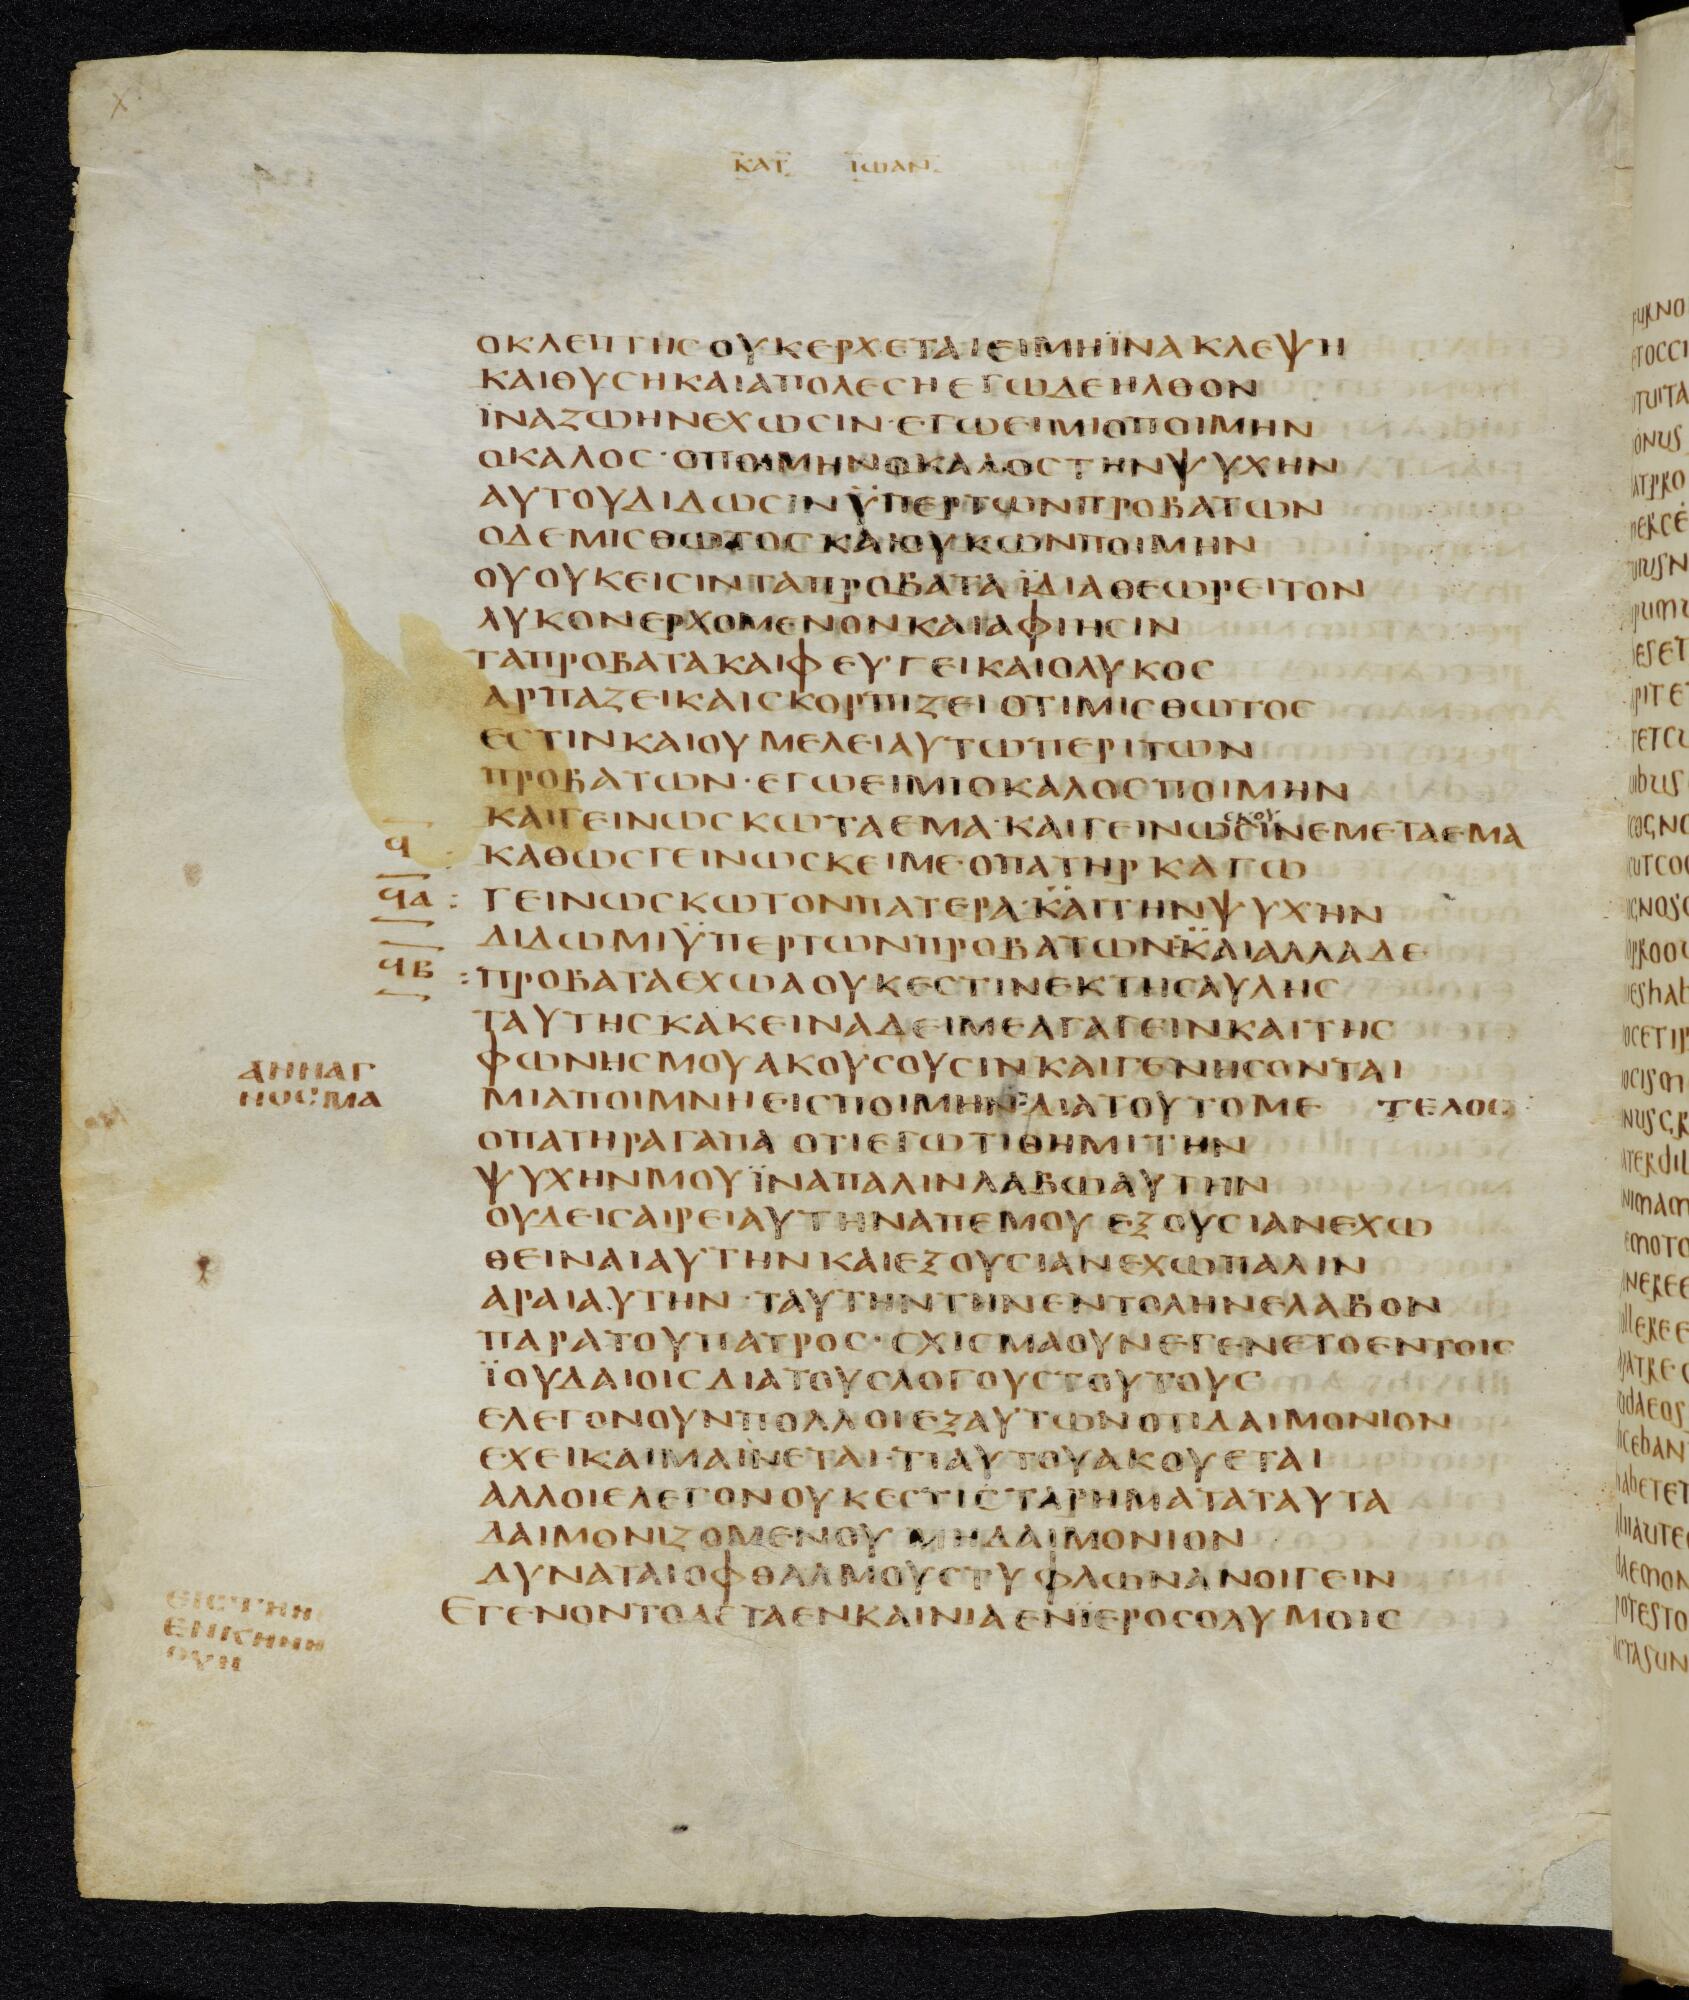 ΚΑΤ ΙΩΑΝ
ΟΚΛΕΠΤΗСΟΥΚΕΡΧΕΤΑΙΕΙΜΗΪΝΑΚΛΕΨΗ
ΚΑΙΘΥСΗΚΑΙΑΠΟΛΕСΗΕΓΩΔΕΗΛΘΟΝ
ΪΝΑΖΩΗΝΕΧΩСΙΝ·ΕΓΩΕΙΜΙΟΠΟΙΜΗΝ
ΟΚΑΛΟС·ΟΠΟΙΜΗΝΟΚΑΛΟСΤΗΝΨΥΧΗΝ
ΑΥΤΟΥΔΙΔΩСΙΝΫΠΕΡΤΩΝΠΡΟΒΑΤΩΝ
ΟΔΕΜΙСΘΩΤΟСΚΑΙΟΥΚΩΝΠΟΙΜΗΝ
ΟΥΟΥΚΕΙСΙΝΤΑΠΡΟΒΑΤΑΪΔΙΑΘΕΩΡΕΙΤΟΝ
ΛΥΚΟΝΕΡΧΟΜΕΝΟΝΚΑΙΑΦΙΗСΙΝ
ΤΑΠΡΟΒΑΤΑΚΑΙΦΕΥΓΕΙΚΑΙΟΛΥΚΟС
ΑΡΠΑΖΕΙΚΑΙСΚΟΡΠΙΖΕΙΟΤΙΜΙСΘΩΤΟС
ΕСΤΙΝΚΑΙΟΥΜΕΛΕΙΑΥΤΩΠΕΡΙΤΩΝ
ΠΡΟΒΑΤΩΝ·ΕΓΩΕΙΜΙΟΚΑΛΟСΠΟΙΜΗΝ
ΚΑΙΓΕΙΝΩСΚΩΤΑΕΜΑ·ΚΑΙΓΕΙΝΩСΙΝΕΜΕΤΑΕΜΑ
Ϥ ΚΑΘΩСΓΕΙΝΩСΚΕΙΜΕΟΠΑΤΗΡΚΑΓΩ
ϤΑ : ΓΕΙΝΩСΚΩΤΟΝΠΑΤΕΡΑ·ΚΑΙΤΗΝΨΥΧΗΝ
ΔΙΔΩΜΙΫΠΕΡΤΩΝΠΡΟΒΑΤΩΝΚΑΙΑΛΛΑΔΕ
ϤΒ : ΠΡΟΒΑΤΑΕΧΩΑΟΥΚΕСΤΙΝΕΚΤΗСΑΥΛΗС
ΤΑΥΤΗСΚΑΚΕΙΝΑΔΕΙΜΕΑΓΑΓΕΙΝΚΑΙΤΗС
ΦΩΝΗСΜΟΥΑΚΟΥСΟΥСΙΝΚΑΙΓΕΝΗСΟΝΤΑΙ
ΑΝΝΑΓ
ΝΟСΜΑ
ΜΙΑΠΟΙΜΝΗΕΙСΠΟΙΜΗΝΔΙΑΤΟΥΤΟΜΕ ΤΕΛΟС
ΟΠΑΤΗΡΑΓΑΠΑ ΟΤΙΕΓΩΤΙΘΗΜΙΤΗΝ
ΨΥΧΗΝΜΟΥΪΝΑΠΑΛΙΝΛΑΒΩΑΥΤΗΝ
ΟΥΔΕΙСΑΙΡΕΙΑΥΤΗΝΑΠΕΜΟΥ ΕΞΟΥСΙΑΝΕΧΩ
ΘΕΙΝΑΙΑΥΤΗΝΚΑΙΕΞΟΥСΙΑΝΕΧΩΠΑΛΙΝ
ΑΡΑΙΑΥΤΗΝ·ΤΑΥΤΗΝΤΗΝΕΝΤΟΛΗΝΕΛΑΒΟΝ
ΠΑΡΑΤΟΥΠΑΤΡΟС·СΧΙСΜΑΟΥΝΕΓΕΝΕΤΟΕΝΤΟΙС
ΪΟΥΔΑΙΟΙСΔΙΑΤΟΥСΛΟΓΟΥСΤΟΥΤΟΥС
ΕΛΕΓΟΝΟΥΝΠΟΛΛΟΙΕΞΑΥΤΩΝΟΤΙΔΑΙΜΟΝΙΟΝ
ΕΧΕΙΚΑΙΜΑΙΝΕΤΑΙ·ΤΙΑΥΤΟΥΑΚΟΥΕΤΑΙ
ΑΛΛΟΙΕΛΕΓΟΝΟΥΚΕСΤΙСΤΑΡΗΜΑΤΑΤΑΥΤΑ
ΔΑΙΜΟΝΙΖΟΜΕΝΟΥ ΜΗΔΑΙΜΟΝΙΟΝ
ΔΥΝΑΤΑΙΟΦΘΑΛΜΟΥСΤΥΦΛΩΝΑΝΟΙΓΕΙΝ
ΕΓΕΝΟΝΤΟΔΕΤΑΕΝΚΑΙΝΙΑΕΝΪΕΡΟСΟΛΥΜΟΙС
ΕΙСΤΗΝ